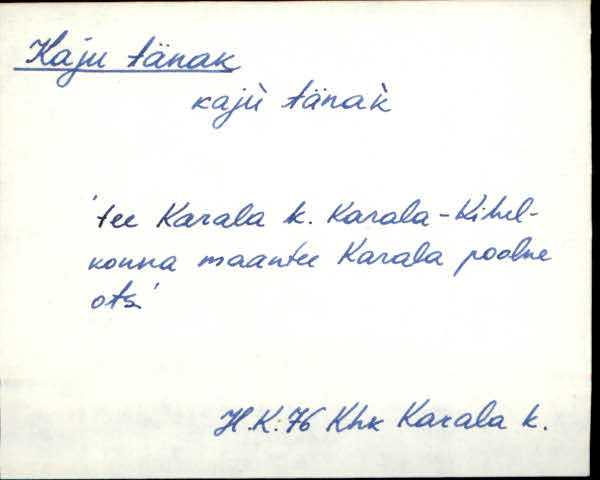 Kaju tänak
kajù tänàk
'tee Karala k. Karala-Kihel-
konna maantee Karala poolne
ots'
H.K. 76 Khk Karala k.